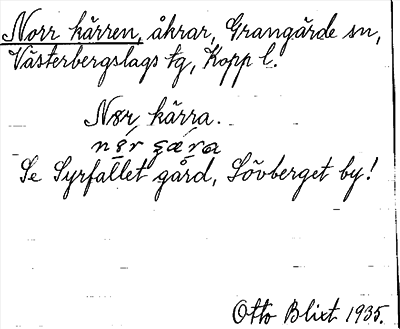 Norr kärren, åkrar, Grangärde sn,
Västerbergslags tg, Kopp l.
Nør kärra.
nǿ̱r çǽ̱ra
Se Syrfallet gård, Lövberget by!
Otto Blixt 1935.